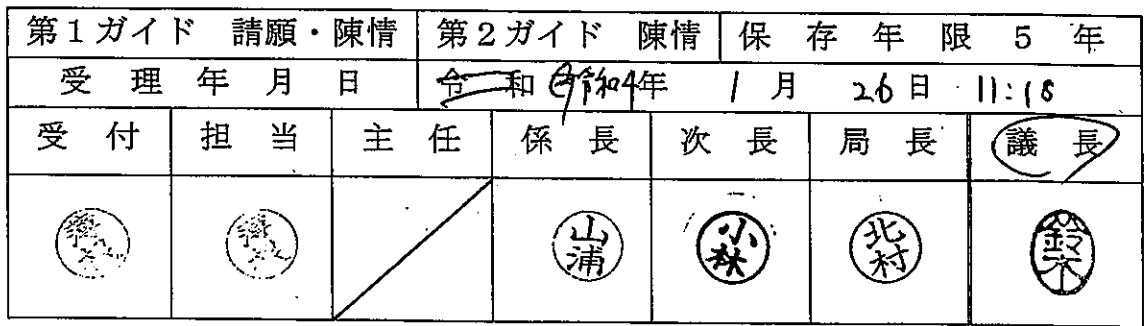 第1ガイド 請願・陳情 第2ガイド 陳情 保存年限 5年
受理年月日 令和 令和4年 1月 26日 11:18
受付 担当 主任 係長 次長 局長 議長
山浦 小林 北村 鈴木